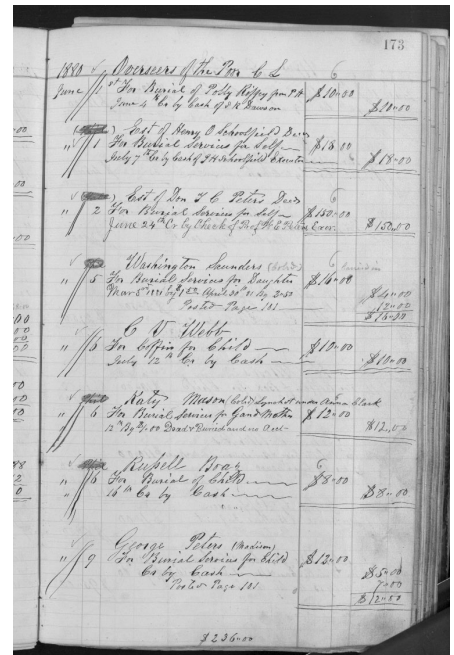 173
1880 Overseers of the Poor C L
June 1st For Burial of Polly from P.H. $10.00
June 4th Cr by Cash of Dawson $10.00
Est of Henry O Schoolfield Decd
" 1 For Burial Services for Self $18.00
July 7th Cr by Cash of Schoolfield Executor $18.00
Est of Don T. C Peters Decd
" 2 For Burial Services for Self $150.00
June 24th Cr by Check of Peters Exer. $150.00
Washington Saunders (Cold)
" 5 For Burial Services for Daughter $16.00
$4.00
12.00
Posted Page 101 $16.00
C V Webb
" 6 For Coffin for Child $10.00
July 12th Cr by Cash $10.00
Katy Mason (Cold)
" 6 For Burial Services for Grand Mother $12.00
$12.00
Russell Bray
" 6 For Burial of Child $8.00
" 16th Cr by Cash $8.00
George Peters (Madison)
" 9 For Burial Services for Child $12.00
Cr by Cash $5.00
7.00
Posted Page 101 $12.00
$236.00